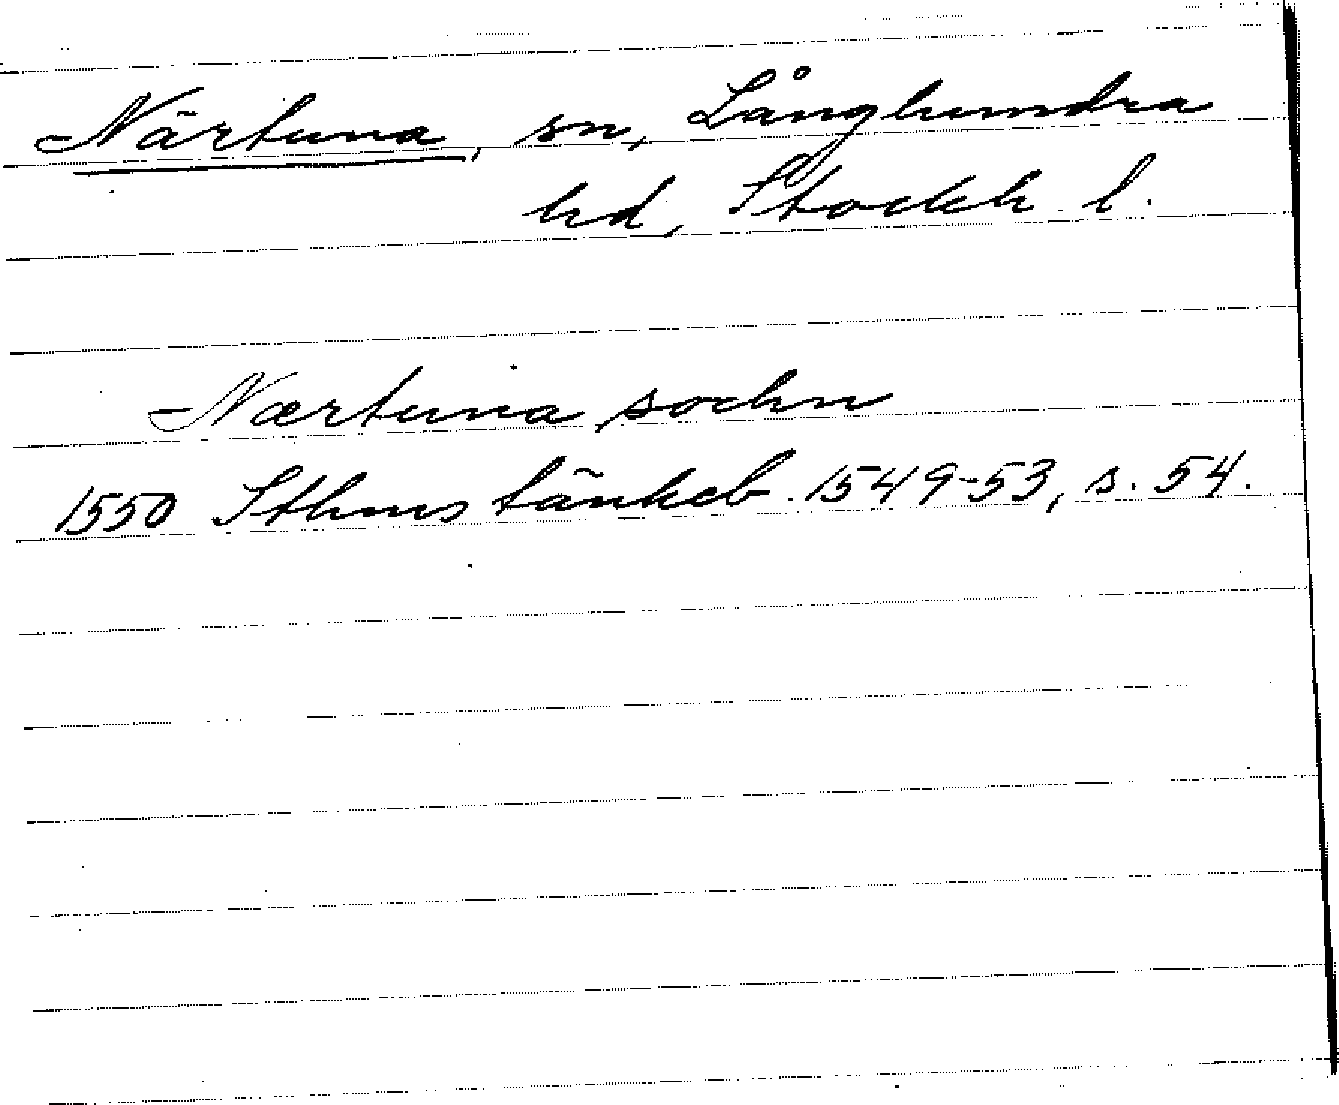 Närtuna, sn, Långhundra
hd, Stockh l.
Nærtuna sochn
1550 Sthms tänkeb. 1549-53, s. 54.